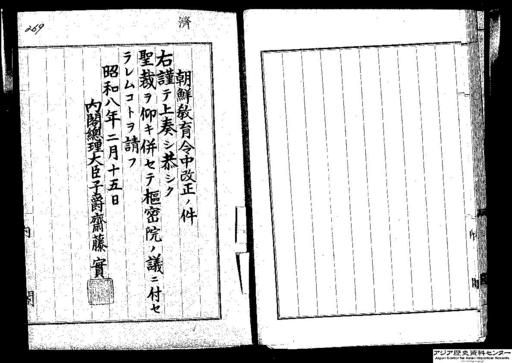 269
済
朝鮮教育令中改正ノ件
右謹テ上奏シ恭シク
聖裁ヲ仰キ併セテ枢密院ノ議ニ付セ
ラレムコトヲ請フ
昭和八年二月十五日
内閣総理大臣子爵齋藤實
内
閣
アジア歴史資料センター
Japan Center for Asian Historical Records